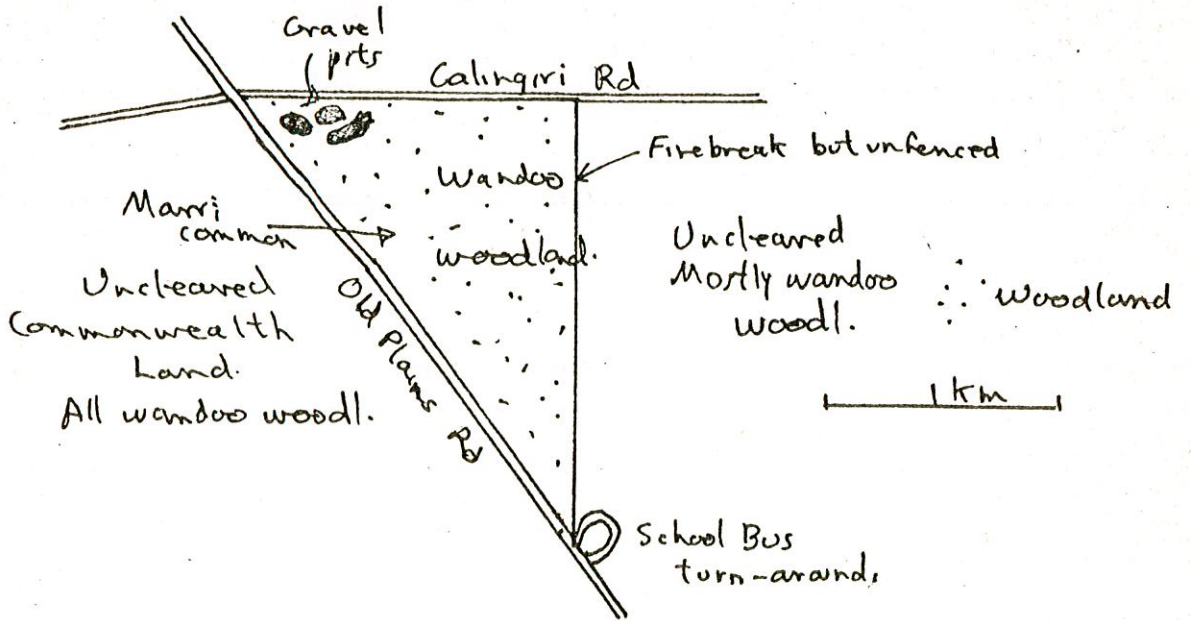 Gravel
pits
Calingiri Rd
Firebreak but unfenced
Wandoo
woodland.
Marri
common
Uncleared
Commonwealth
Land.
All wandoo woodl.
Old Plains Rd
Uncleared
Mostly wandoo
woodl.
woodland
1 km
School Bus
turn-around.